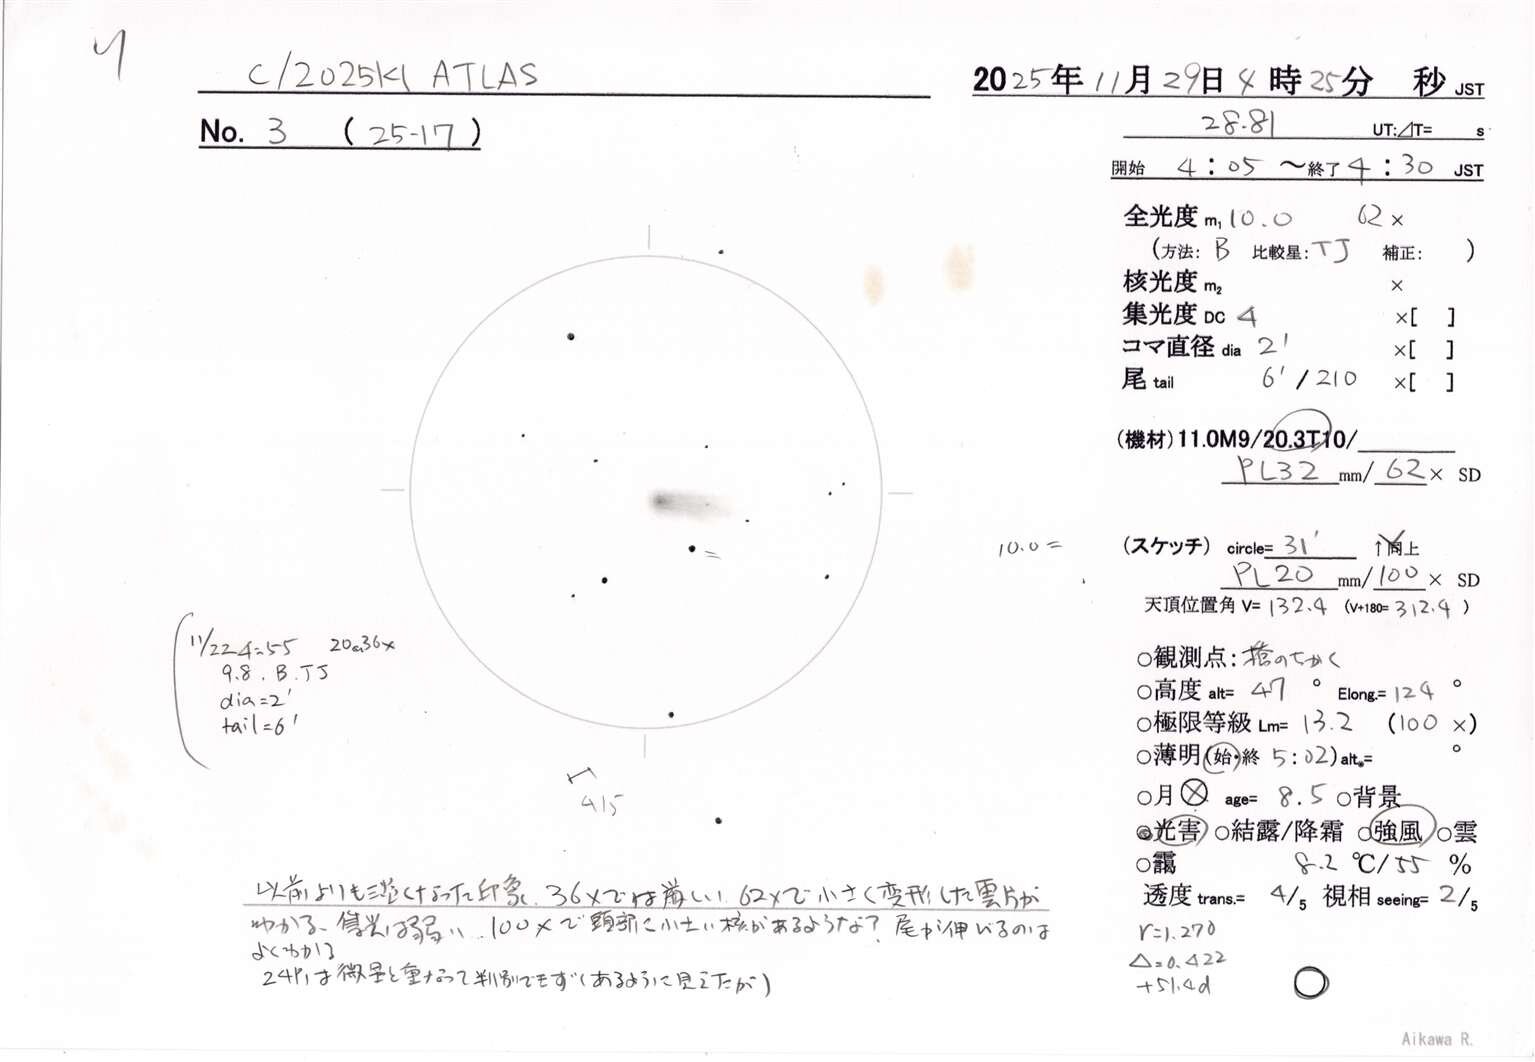 4
C/2025K1 ATLAS
No. 3 (25-17)
2025年11月29日4時25分 秒 JST
28.81 UT:⊿T= s
開始 4:05 ～終了 4:30 JST
全光度 m₁ 10.0 62 ×
(方法: B 比較星: TJ 補正: )
核光度 m₂ ×
集光度 DC 4 ×[ ]
コマ直径 dia 2' ×[ ]
尾 tail 6'/210 ×[ ]
(機材) 11.0M9/20.3T10/
PL32 mm/ 62 × SD
10.0 =
(スケッチ) circle= 31' ↑同上
PL20 mm/100 × SD
天頂位置角 V= 132.4 (V+180= 312.4 )
11/22 4:55 20cm36x
9.8. B. TJ
dia=2'
tail=6'
○観測点:
○高度 alt= 47 ° Elong.= 124 °
○極限等級 Lm= 13.2 (100 ×)
○薄明(始・終 5:02) alt.= °
○月 age= 8.5 ○背景
○光害 ○結露/降霜 ○強風 ○雲
○靄 8.2 ℃/ 55 %
透度 trans.= 4/5 視相 seeing= 2/5
r=1.270
Δ=0.422
+51.4d
415
以前よりも淡くなった印象. 36×では難しい. 62×で小さく変形した雲片が
わかる. 集光は弱い. 100×で頭部に小さい核があるような? 尾が伸びるのは
よくわかる
24P,は微星と重なって判別できず(あるように見えたが)
Aikawa R.